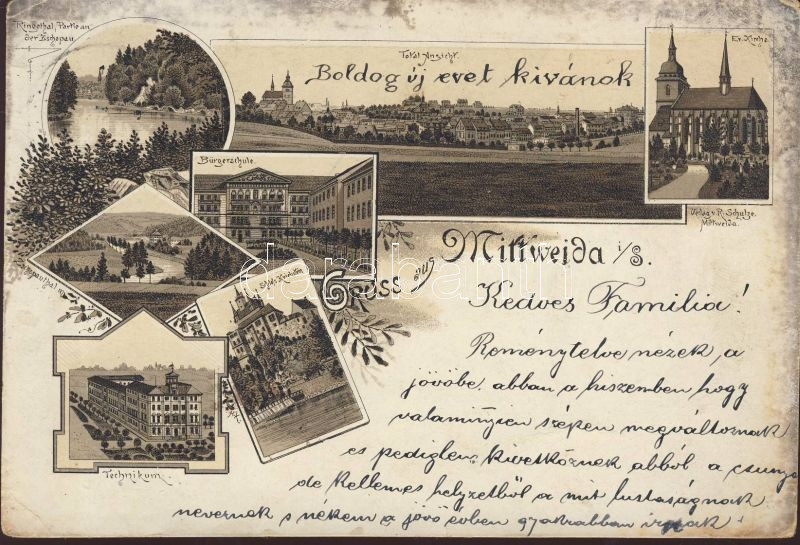 Ringethal, Partie an
der Zschopau.
Total Ansicht.
Ev. Kirche.
Boldog új evet kivánok
Bürgerschule.
Verlag v. R. Schulze,
Mittweida.
Gruss aus Mittweida i/S.
Kedves Familia!
Reménytelve nézek a
jövöbe, abban a hiszemben hogy
valamenyien szépen megváltoznak
es pediglen kivetköznek abból a csunya
de kellemes helyzetböl a mit lustaságnak
neveznek s nékem a jövö évben gyakrabban irnak!
Technikum.
darabanth